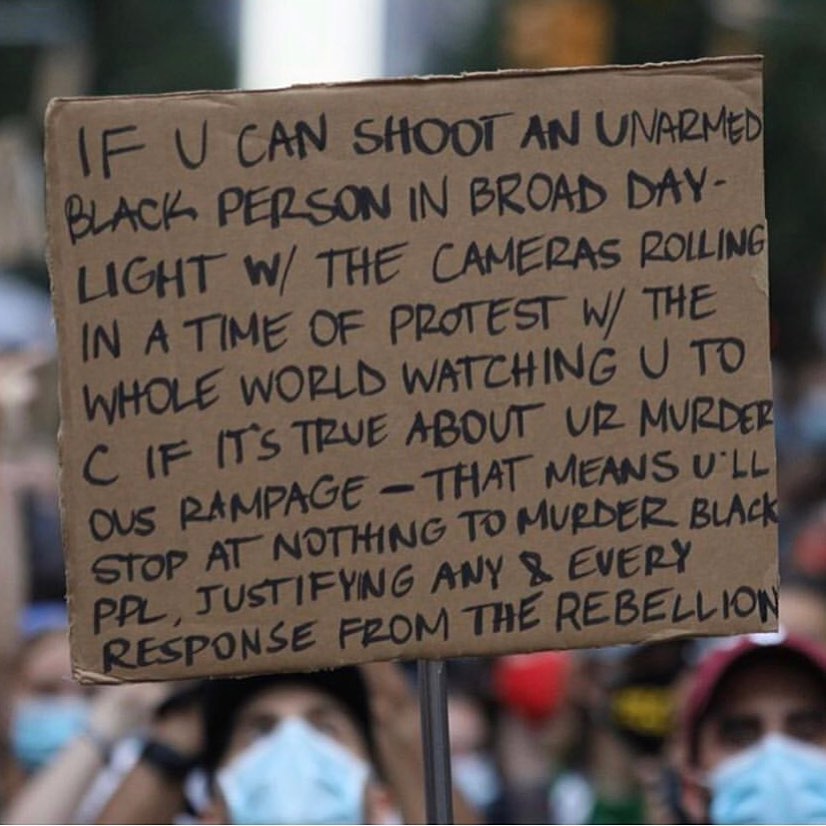 IF U CAN SHOOT AN UNARMED
BLACK PERSON IN BROAD DAY-
LIGHT W/ THE CAMERAS ROLLING
IN A TIME OF PROTEST W/ THE
WHOLE WORLD WATCHING U TO
C IF IT'S TRUE ABOUT UR MURDER
OUS RAMPAGE – THAT MEANS U'LL
STOP AT NOTHING TO MURDER BLACK
PPL, JUSTIFYING ANY & EVERY
RESPONSE FROM THE REBELLION